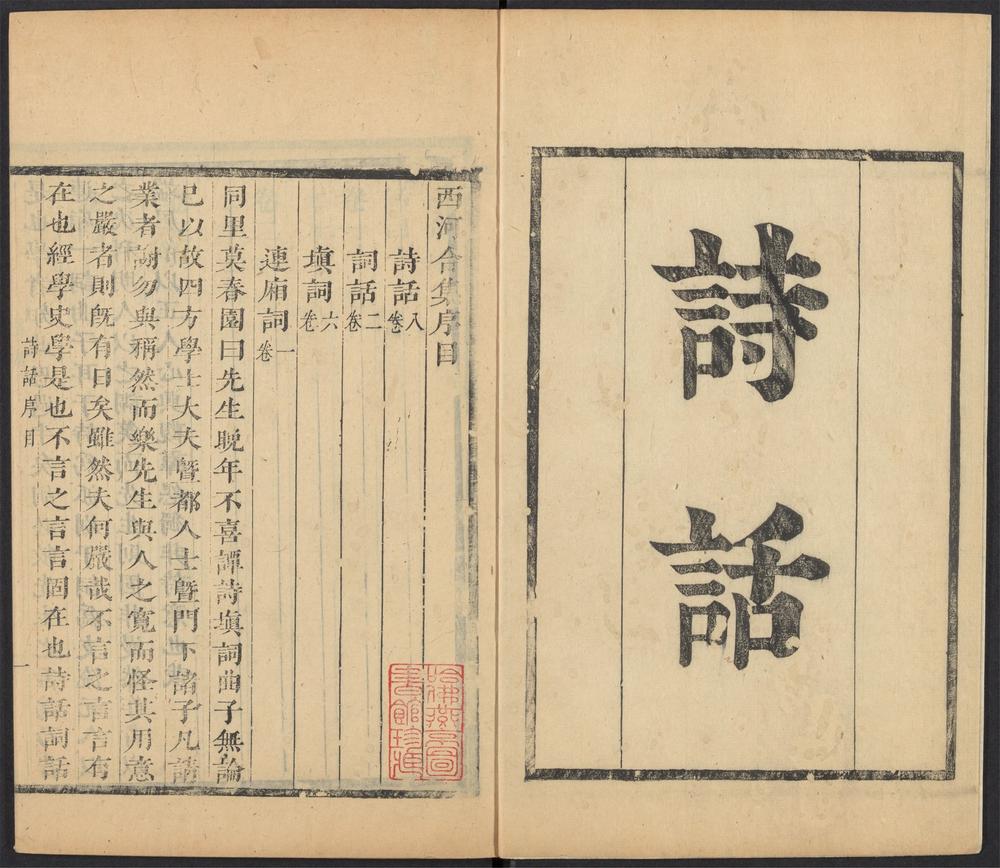 詩話
西河合集序目
詩話八卷
詞話二卷
塡詞六卷
連廂詞一卷
同里莫春園曰先生晩年不喜譚詩塡詞曲子無論
已以故四方學士大夫曁都人士曁門下諸子凡請
業者謝勿與稱然而樂先生與人之寬而怪其用意
之嚴者則旣有日矣雖然夫何嚴哉不言之言言有
在也經學史學是也不言之言言固在也詩話詞話
詩話序目
一
哈佛燕京圖
書館珍藏